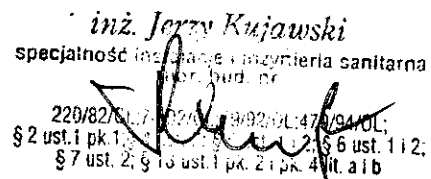 inż. Jerzy Kujawski
specjalność instalacje i inżynieria sanitarna
upr. bud. nr
220/82/OL; 92/OL; 479/94/OL;
§ 2 ust. 1 pk. 1; § 6 ust. 1 i 2;
§ 7 ust. 2; § 13 ust. 1 pk. 2 i pk. 4 lit. a i b